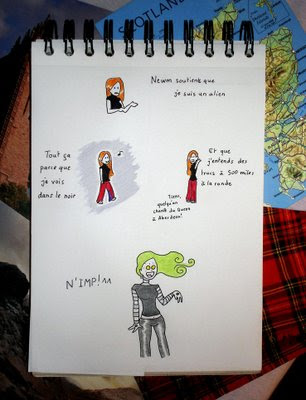 SCOTLAND
Newm soutient que
je suis un alien
Tout ça
parce que
je vois
dans le noir
Et que
j'entends des
trucs à 500 miles
à la ronde
Tiens,
quelqu'un
chante du Queen
à Aberdeen!
N'IMP! ^^